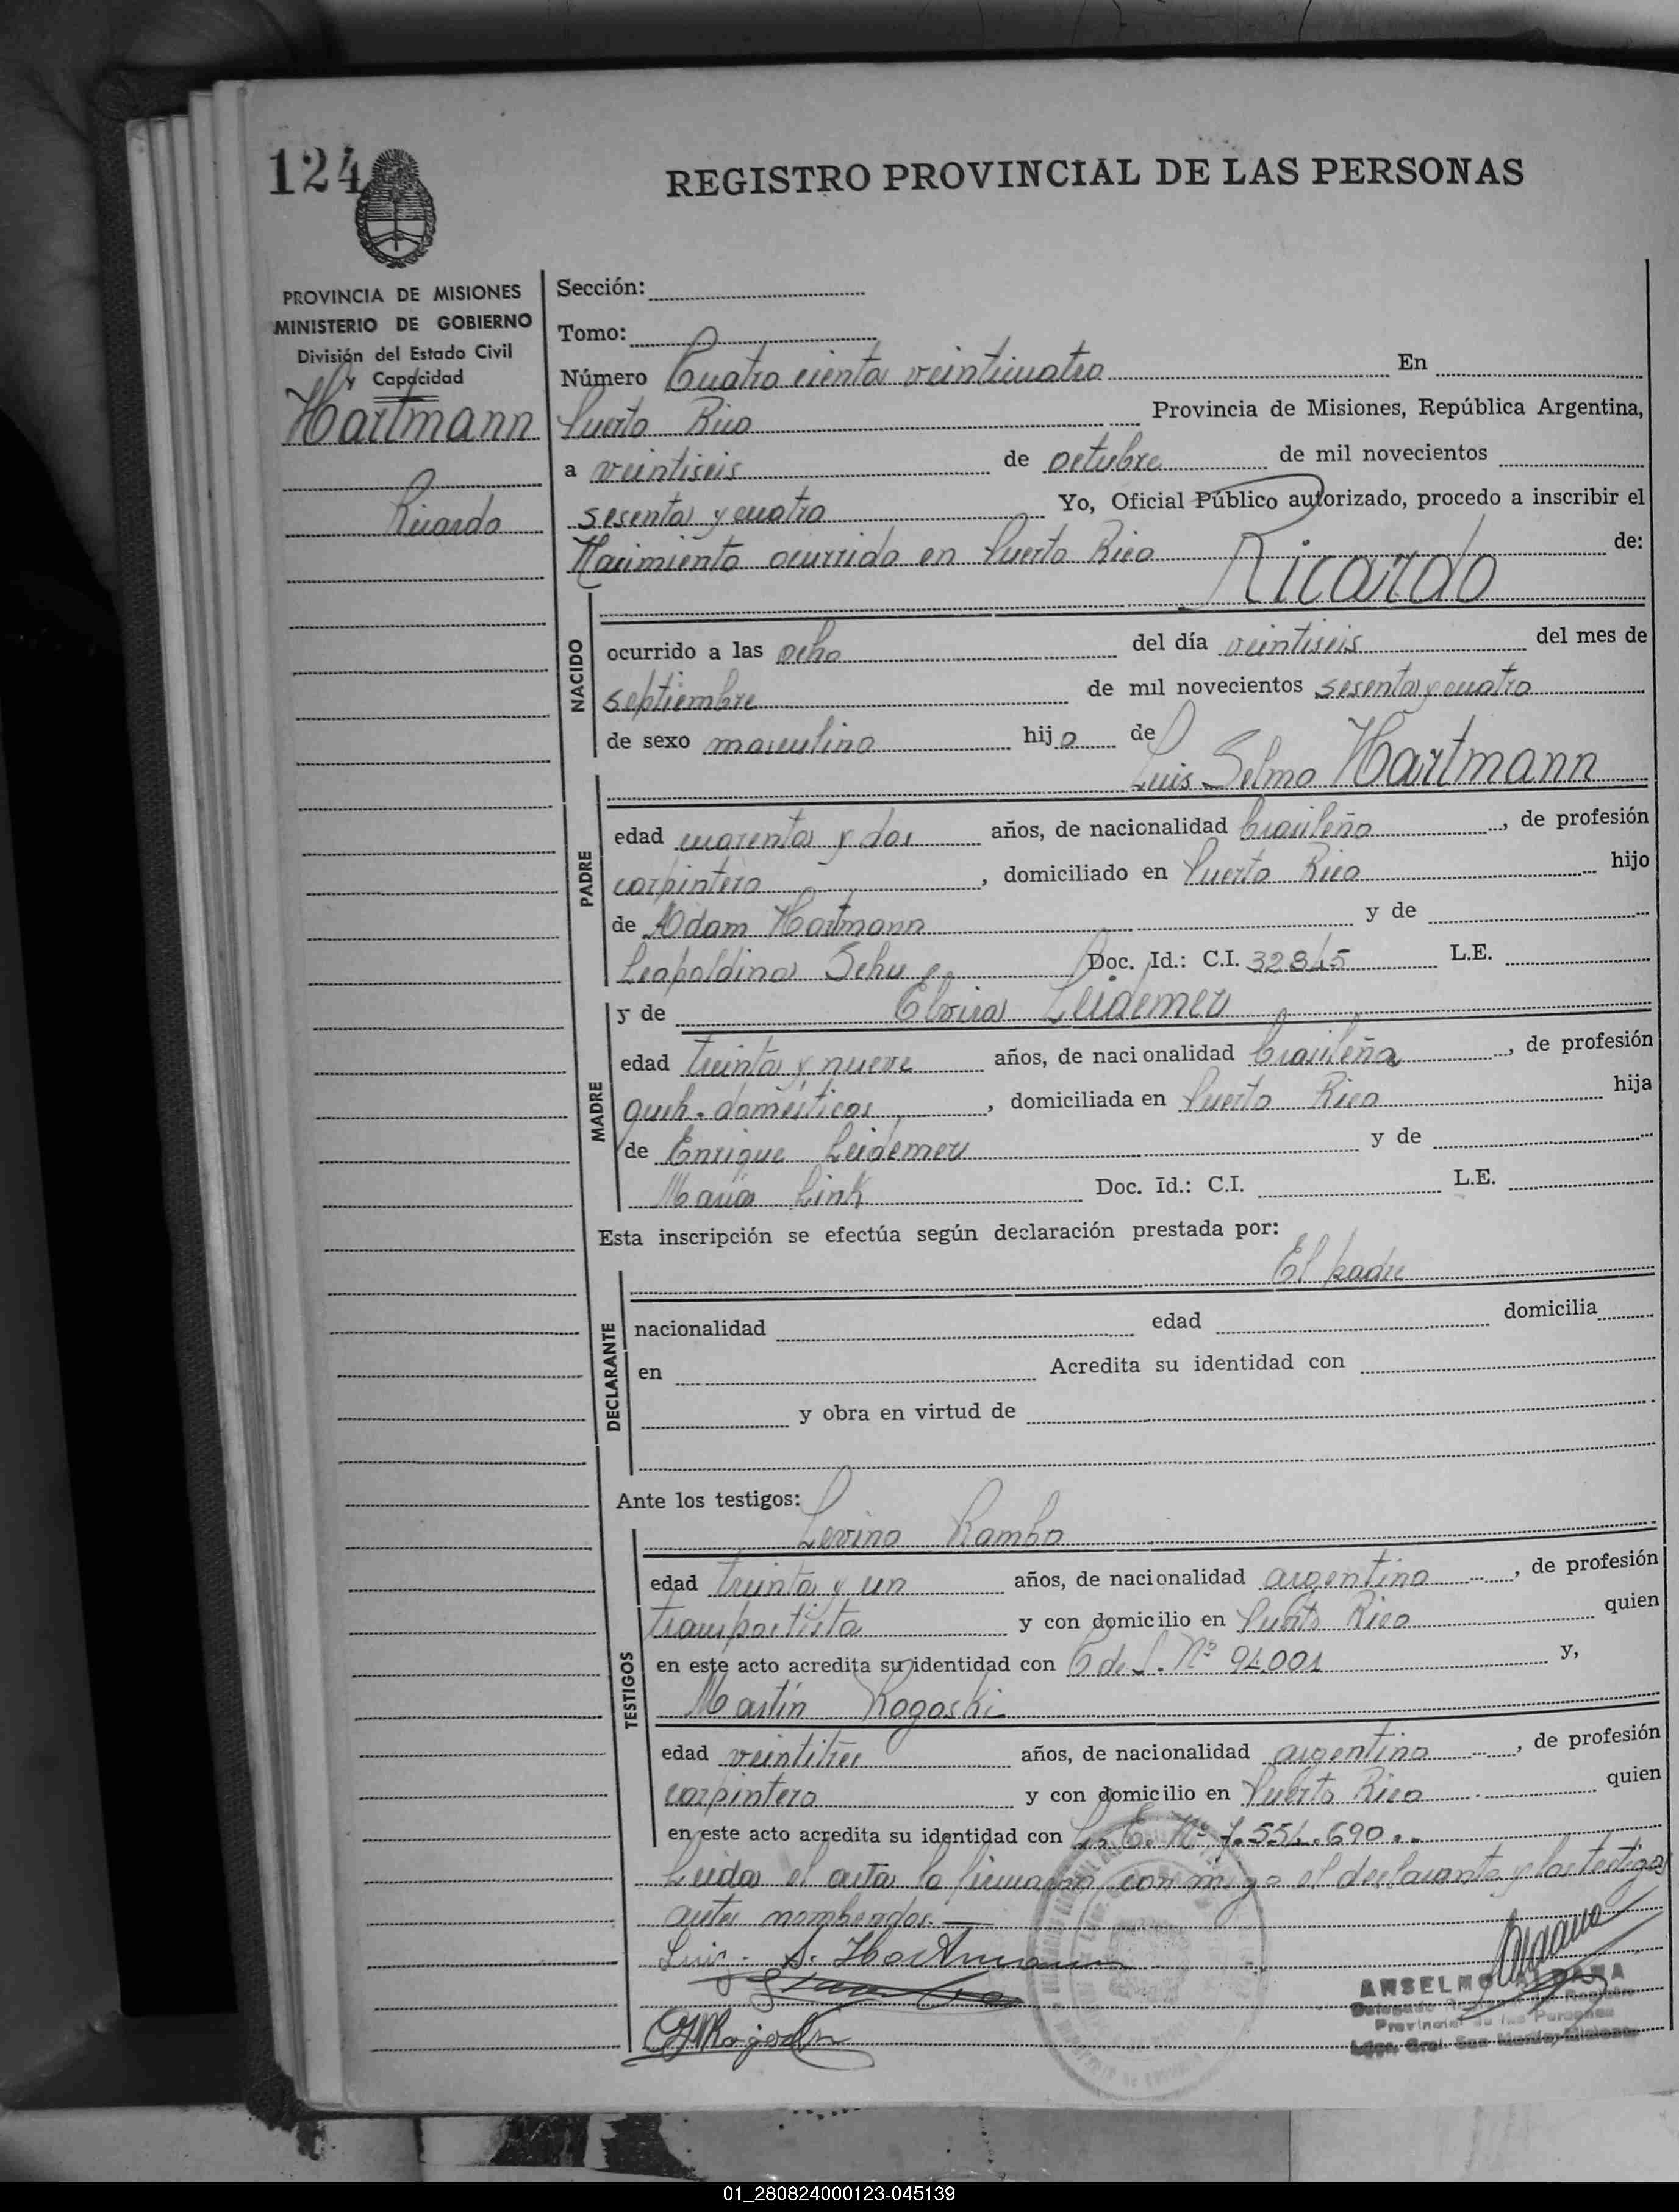 124
REGISTRO PROVINCIAL DE LAS PERSONAS
PROVINCIA DE MISIONES
MINISTERIO DE GOBIERNO
División del Estado Civil
y Capacidad
Hartmann
Ricardo
Sección:
Tomo:
Número Cuatro cientos veinticuatro En
Puerto Rico Provincia de Misiones, República Argentina,
a veintiseis de octubre de mil novecientos
sesenta y cuatro Yo, Oficial Público autorizado, procedo a inscribir el
Nacimiento ocurrido en Puerto Rico de:
Ricardo
NACIDO
ocurrido a las ocho del día veintiseis del mes de
septiembre de mil novecientos sesenta y cuatro
de sexo masculino hijo de
Luis Selmo Hartmann
PADRE
edad cuarenta y dos años, de nacionalidad brasileña, de profesión
carpintero, domiciliado en Puerto Rico hijo
de Adam Hartmann y de
Leopoldina Schu Doc. Id.: C.I. 32845 L.E.
y de Elvira Leidemer
MADRE
edad treinta y nueve años, de nacionalidad brasileña, de profesión
queh. domésticos, domiciliada en Puerto Rico hija
de Enrique Leidemer y de
María Link Doc. Id.: C.I. L.E.
Esta inscripción se efectúa según declaración prestada por:
El padre
DECLARANTE
nacionalidad edad domicilia
en Acredita su identidad con
y obra en virtud de
Ante los testigos:
Levino Rambo
TESTIGOS
edad treinta y un años, de nacionalidad argentino, de profesión
transportista y con domicilio en Puerto Rico quien
en este acto acredita su identidad con C de I. Nº 94.001 y,
Martín Rogoski
edad veintitres años, de nacionalidad argentino, de profesión
carpintero y con domicilio en Puerto Rico quien
en este acto acredita su identidad con L. E. Nº 7.554.690..
Leida el acta la firmaron conmigo el declarante y los testigos
antes nombrados.—
Luis S. Hartmann
ANSELMO ALDANA
Delegado del Registro
Provincial de las Personas
Ldor. Gral. San Martín, Misiones
01_280824000123-045139